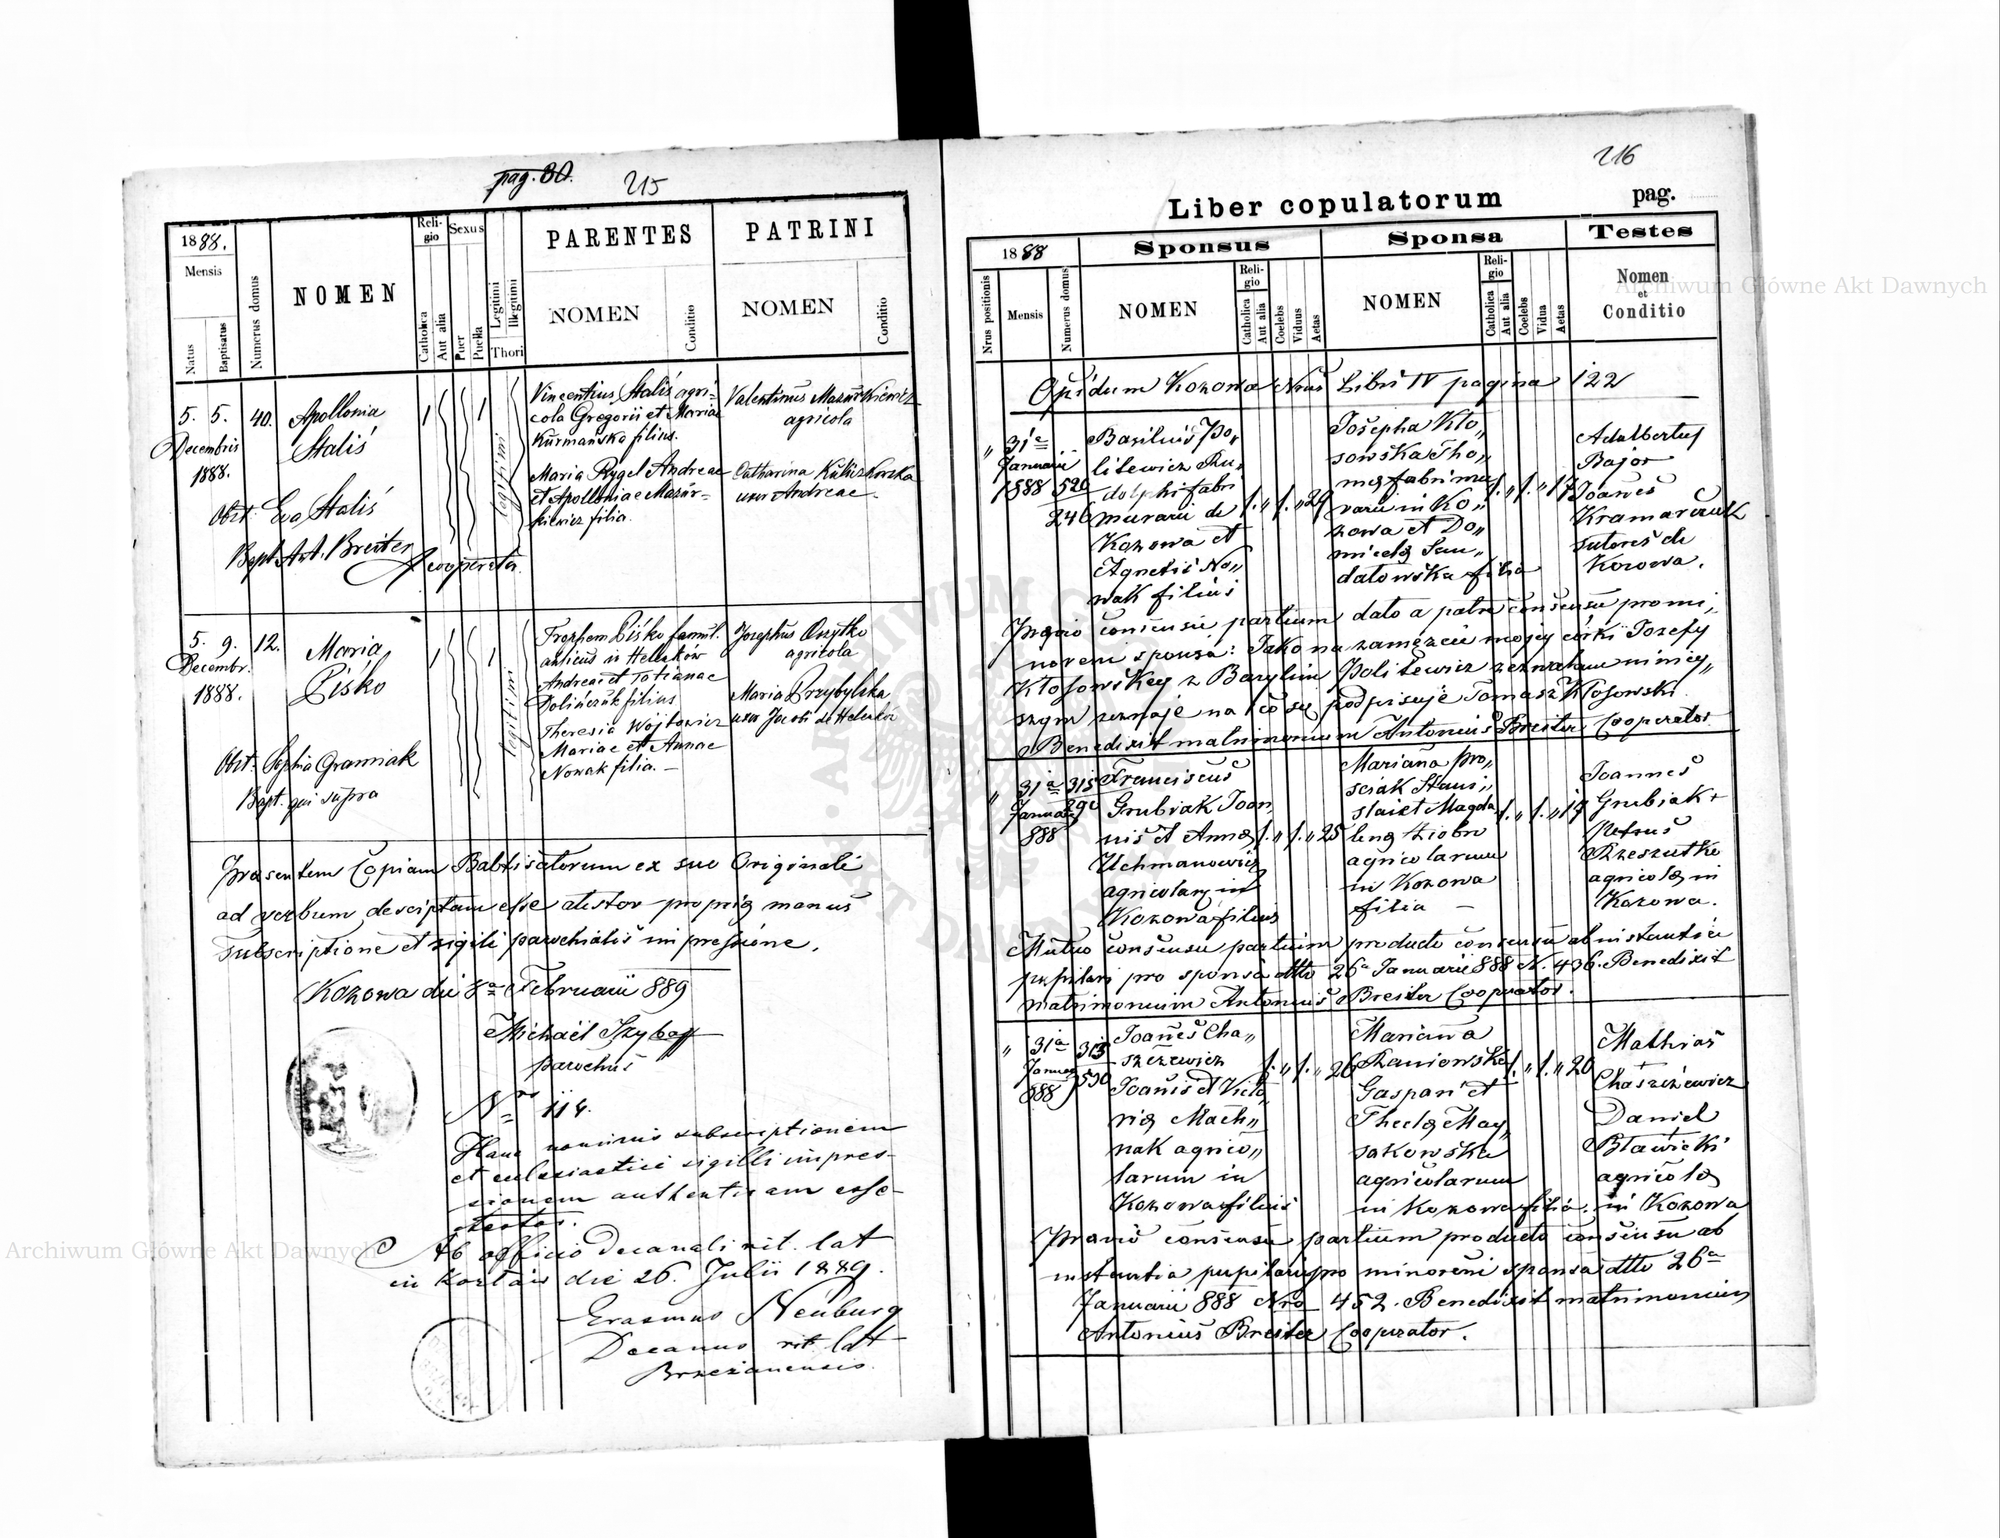 pag. 80.
215
1888.
Mensis
Natus
Baptisatus
Numerus domus
NOMEN
Religio
Catholica
Aut alia
Sexus
Puer
Puella
Legitimi
Illegitimi
Thori
PARENTES
NOMEN
Conditio
PATRINI
NOMEN
Conditio
5. 5. 40.
Decembris
1888.
Apollonia
Staliś
1
1
legitimi
Vincentius Staliś agri-
cola Gregorii et Mariae
Kurmańska filius.
Maria Rygel Andreae
et Apolloniae Mazur-
kiewicz filia.
Valentinus Mazurkiewicz
agricola
Catharina
uxor Andreae.
Obst. Eva Staliś
Bapt. Ant. Breiter
cooperator.
5. 9. 12.
Decembr.
1888.
Maria
Piśko
1
1
legitimi
Piśko famul.
in Helenków
Andreae et Tatianae
filius
Theresia Wojtowicz
Mariae et Annae
Nowak filia. —
Josephus
agricola
Maria Przybylska
uxor Jacobi de Helenków
Obst. Sophia Graniak
Bapt. qui supra
Praesentem Copiam Babtisatorum ex suo Originali
ad verbum desciptam esse atestor propriae manus
subscriptione et sigili parochialis impressione.
Kozowa die 8ª Februarii 889
Michaël
parochus
Nro 114.
Hanc nominis subscriptionem
et ecclesiastici sigilli impres-
sionem authenticam esse
testor.
Ab officio Decanali rit. lat
in die 26. Julii 1889.
Erasmus Neuburg
Decanus rit. lat
Brzezanensis.
216
Liber copulatorum
pag.
1888
Nrus positionis
Mensis
Numerus domus
Sponsus
NOMEN
Religio
Catholica
Aut alia
Coelebs
Viduus
Aetas
Sponsa
NOMEN
Religio
Catholica
Aut alia
Coelebs
Vidua
Aetas
Testes
Nomen
et
Conditio
Opidum Kozowa Nrus Libri IV pagina 122
" 31ª
Januarii
1888
520
246
Basilius Po„
litewicz Ru„
dolphi fabri
murarii de
Kozowa et
Agnetis No„
wak filius
1. „ 1. „ 29
Josepha Kło„
sowska Tho„
mae fabri mu„
rarii in Ko„
zowa et Do„
micelae San„
datowska filia
1. „ 1. „ 17
Adalbertus
Bajor
Joanes
Kramarczuk
sutores de
Kozowa.
Previo consensu partium dato a patre consensu pro mi„
noreni sponsa: Jako na zamęzcie mojej córki Józefy
Kłosowskiej z Bazylim Politewicz zezwalam niniej„
szym zeznaję na co się podpisuję Tomasz Kłosowski.
Benedixit matrimonium Antonius Breiter Cooperator
" 31ª
Januarii
888
315
290
Franciscus
Grubiak Joan„
nis et Annae
Uchmanowicz
agricolarum in
Kozowa filius
1. „ 1. „ 25
Mariana Pro„
sciak Stani„
slai et Magda„
lenae Ziobro
agricolarum
in Kozowa
filia —
1. „ 1. „ 17
Joannes
Grubiak +
Petrus
Rzeszutko
agricolae in
Kozowa.
Mutuo consensu partium producto consensu ab instantia
pupilari pro sponsa dtto 26ª Januarii 888 N. 436. Benedixit
matrimonium Antonius Breiter Cooperator.
" 31ª
Januarii
888
313
530
Joanes Cha„
szczewicz
Joanis et Victo„
riae Mach„
nak agrico„
larum in
Kozowa filius
1. „ 1. „ 26
Marianna
Raniowska
Gaspari et
Theclae May„
sakowska
agricolarum
in Kozowa filia.
1. „ 1. „ 20
Mathias
+
Chaszczewicz
Daniel
+
Bławicki
agricolae
in Kozowa
Previo consensu partium producto consensu ab
instantia pupilari pro minoreni sponsa dtto 26ª
Januarii 888 Nro 452. Benedixit matrimonium
Antonius Breiter Cooperator.
Archiwum Główne Akt Dawnych
Archiwum Główne Akt Dawnych
ARCHIWUM GŁÓWNE AKT DAWNYCH